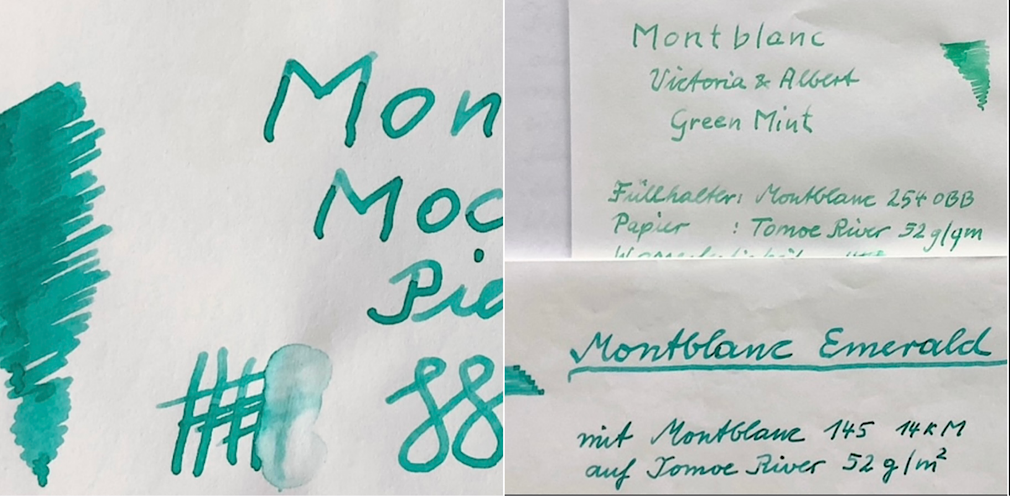 Mon
Moc
Pie
88
Montblanc
Victoria & Albert
Green Mint
Füllhalter: Montblanc 254 OBB
Papier : Tomoe River 52 g/qm
Montblanc Emerald
mit Montblanc 145 14K M
auf Tomoe River 52 g/m²